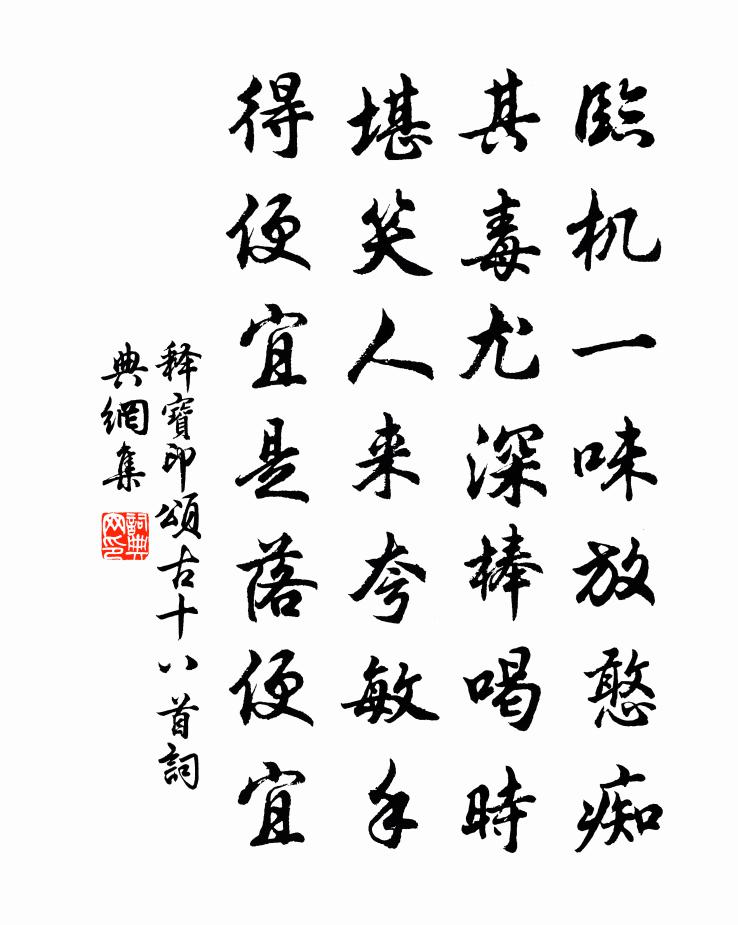 臨机一味放憨痴
其毒尤深棒喝時
堪笑人来夸敏手
得便宜是落便宜
释寶印頌古十八首詞
典網集
詞典
网印